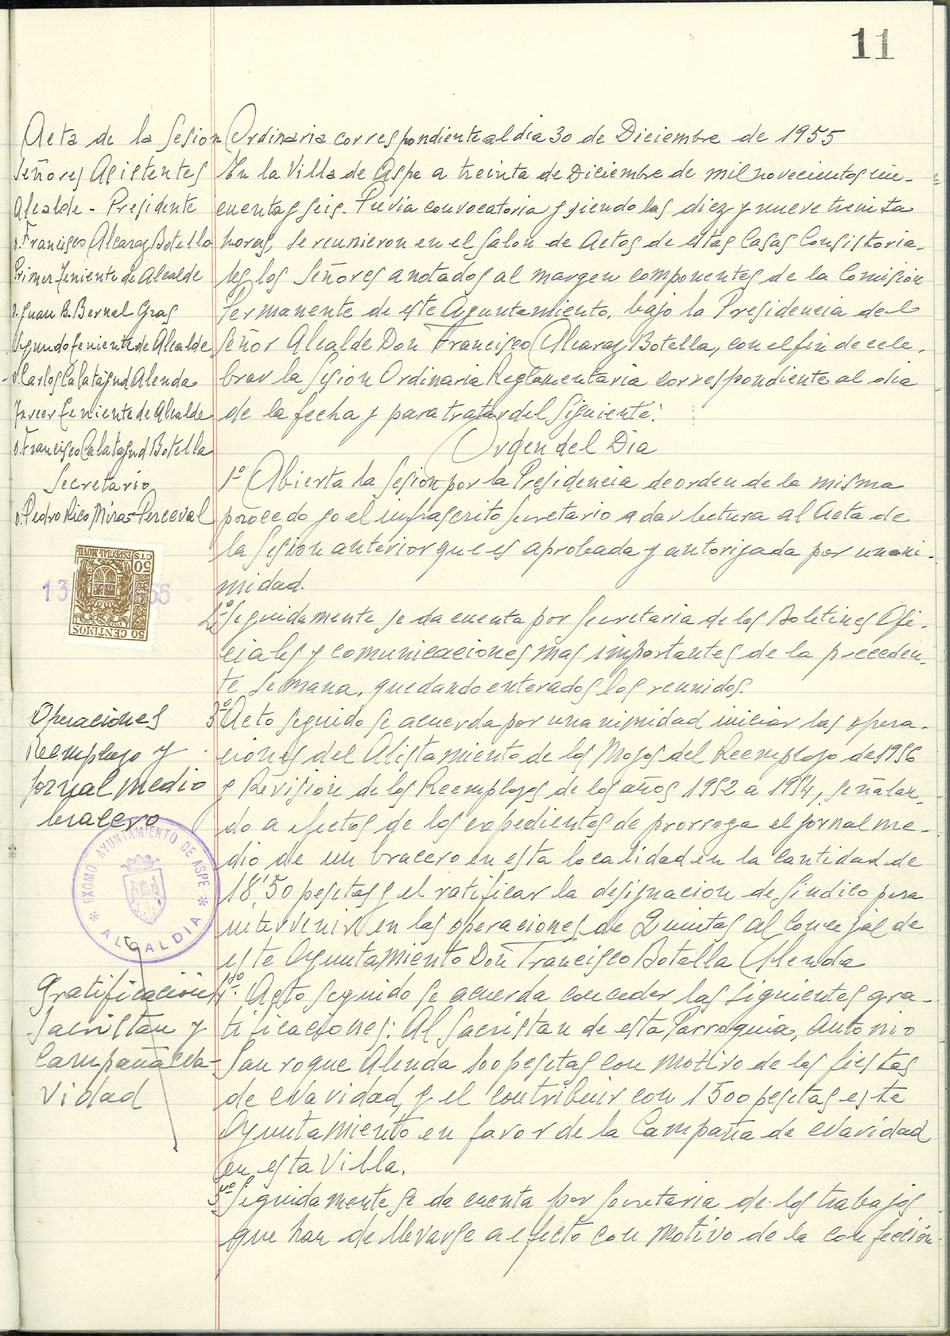 11
Acta de la Sesion Ordinaria correspondiente al dia 30 de Diciembre de 1955
Señores Asistentes
Alcalde - Presidente
D. Francisco Alcaraz Botella
Primer Teniente de Alcalde
D. Juan B. Bernal Gras
Segundo Teniente de Alcalde
D. Carlos Calatayud Alenda
Tercer Teniente de Alcalde
D. Francisco Calatayud Botella
Secretario
D. Pedro Rico Miras-Perceval
En la Villa de Aspe a treinta de Diciembre de mil novecientos cin-
cuenta y seis. Previa convocatoria y siendo las diez y nueve treinta
horas, se reunieron en el Salon de Actos de estas Casas Consistoria-
les, los Señores anotados al margen componentes de la Comisión
Permanente de este Ayuntamiento, bajo la Presidencia del
Señor Alcalde Don Francisco Alcaraz Botella, con el fin de cele-
brar la Sesion Ordinaria Reglamentaria correspondiente al dia
de la fecha y para tratar del siguiente:
Orden del Dia
1º Abierta la Sesion por la Presidencia de orden de la misma
procedo yo el infrascrito Secretario a dar lectura al Acta de
la Sesion anterior que es aprobada y autorizada por unani-
midad.
2º Seguidamente se da cuenta por Secretaria de los Boletines Ofi-
ciales y comunicaciones mas importantes de la preceden-
te semana, quedando enterados los reunidos.
50 CENTIMOS
ESPECIAL MOVIL
50 CTS
13
56
Operaciones
Reemplazo y
jornal medio
bracero
3º Acto seguido se acuerda por unanimidad iniciar las opera-
ciones del Alistamiento de los Mozos del Reemplazo de 1956
y Revision de los Reemplazos de los años 1952 a 1954, señalan-
do a efectos de los expedientes de prorroga el jornal me-
dio de un bracero en esta localidad en la cantidad de
18'50 pesetas y el ratificar la designacion de Sindico para
intervenir en las operaciones de Quintas al Concejal de
este Ayuntamiento Don Francisco Botella Alenda
EXCMO. AYUNTAMIENTO DE ASPE
* ALCALDIA *
Gratificacion
Sacristan y
Campaña Na-
vidad
4º. Acto seguido se acuerda conceder las siguientes gra-
tificaciones: Al Sacristan de esta Parroquia, Antonio
Sanroque Alenda 100 pesetas con motivo de las fiestas
de Navidad, y el contribuir con 1500 pesetas este
Ayuntamiento en favor de la Campaña de Navidad
en esta Villa.
5º Seguidamente se da cuenta por Secretaria de los trabajos
que han de llevarse a efecto con motivo de la confección